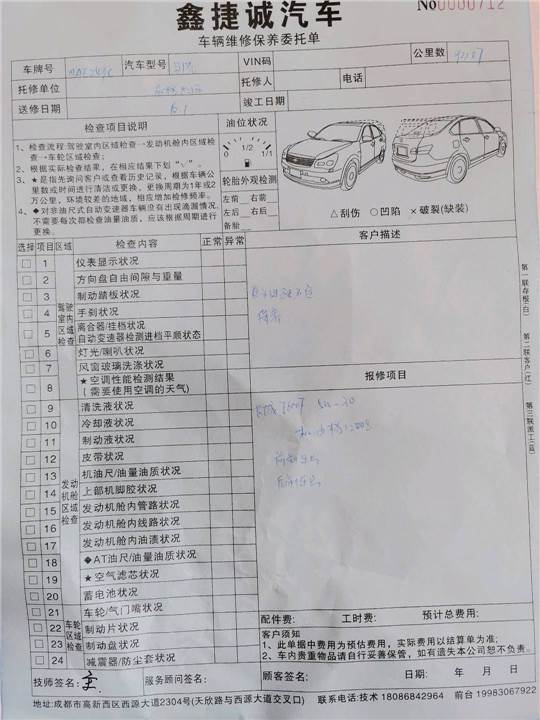 鑫捷诚汽车
No0000712
车辆维修保养委托单
车牌号 汽车型号 VIN码 公里数
托修单位 托修人 电话
送修日期 竣工日期
检查项目说明
1、检查流程:驾驶室内区域检查→发动机舱内区域检
查→车轮区域检查;
2、根据实际检查结果,在相应结果下划“√”。
3、★是指先询问客户或查看历史记录,根据车辆公
里数或时间进行清洁或更换,更换周期为1年或2
万公里,环境较差的地域,相应增加检修频率。
4、◆对非油尺式自动变速器车辆没有出现滴漏情况,
不需要每次都检查油量油质,应该根据周期进行
更换。
油位状况
0 1/2 1/1
轮胎外观检测
左前 右前
左后 右后
备胎
△刮伤 ○凹陷 ×破裂(缺装)
选择 项目 区域 检查内容 正常 异常
客户描述
驾驶室内区域检查
1 仪表显示状况
2 方向盘自由间隙与重量
3 制动踏板状况
4 手刹状况
5 离合器/挂档状况
自动变速器检测进档平顺状态
6 灯光/喇叭状况
7 风窗玻璃洗涤状况
8 ★空调性能检测结果
(需要使用空调的天气)
报修项目
发动机舱区域检查
9 清洗液状况
10 冷却液状况
11 制动液状况
12 皮带状况
13 机油尺/油量油质状况
14 上部机脚胶状况
15 发动机舱内管路状况
16 发动机舱内线路状况
17 发动机舱内油渍状况
18 ◆AT油尺/油量油质状况
19 ★空气滤芯状况
20 蓄电池状况
车轮区域检查
21 车轮/气门嘴状况
22 制动片状况
23 制动盘状况
24 减震器/防尘套状况
第一联存根(白) 第二联客户(红) 第三联派工(蓝)
配件费: 工时费: 预计总费用:
客户须知
1、此单据中费用为预估费用,实际费用以结算单为准;
2、车内贵重物品请自行妥善保管,如有遗失本公司恕不负责。
技师签名: 服务顾问签名: 顾客签名: 日期: 年 月 日
地址:成都市高新西区西源大道2304号(天欣路与西源大道交叉口) 联系电话:技术 18086842964 前台 19983067922